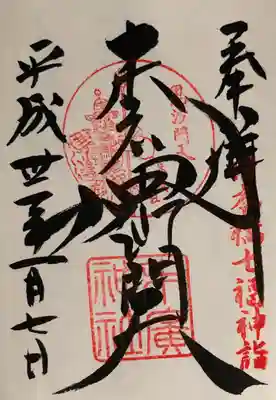 奉拝
日本橋七福神詣
毘沙門天
末廣神社
平成廿三年一月七日